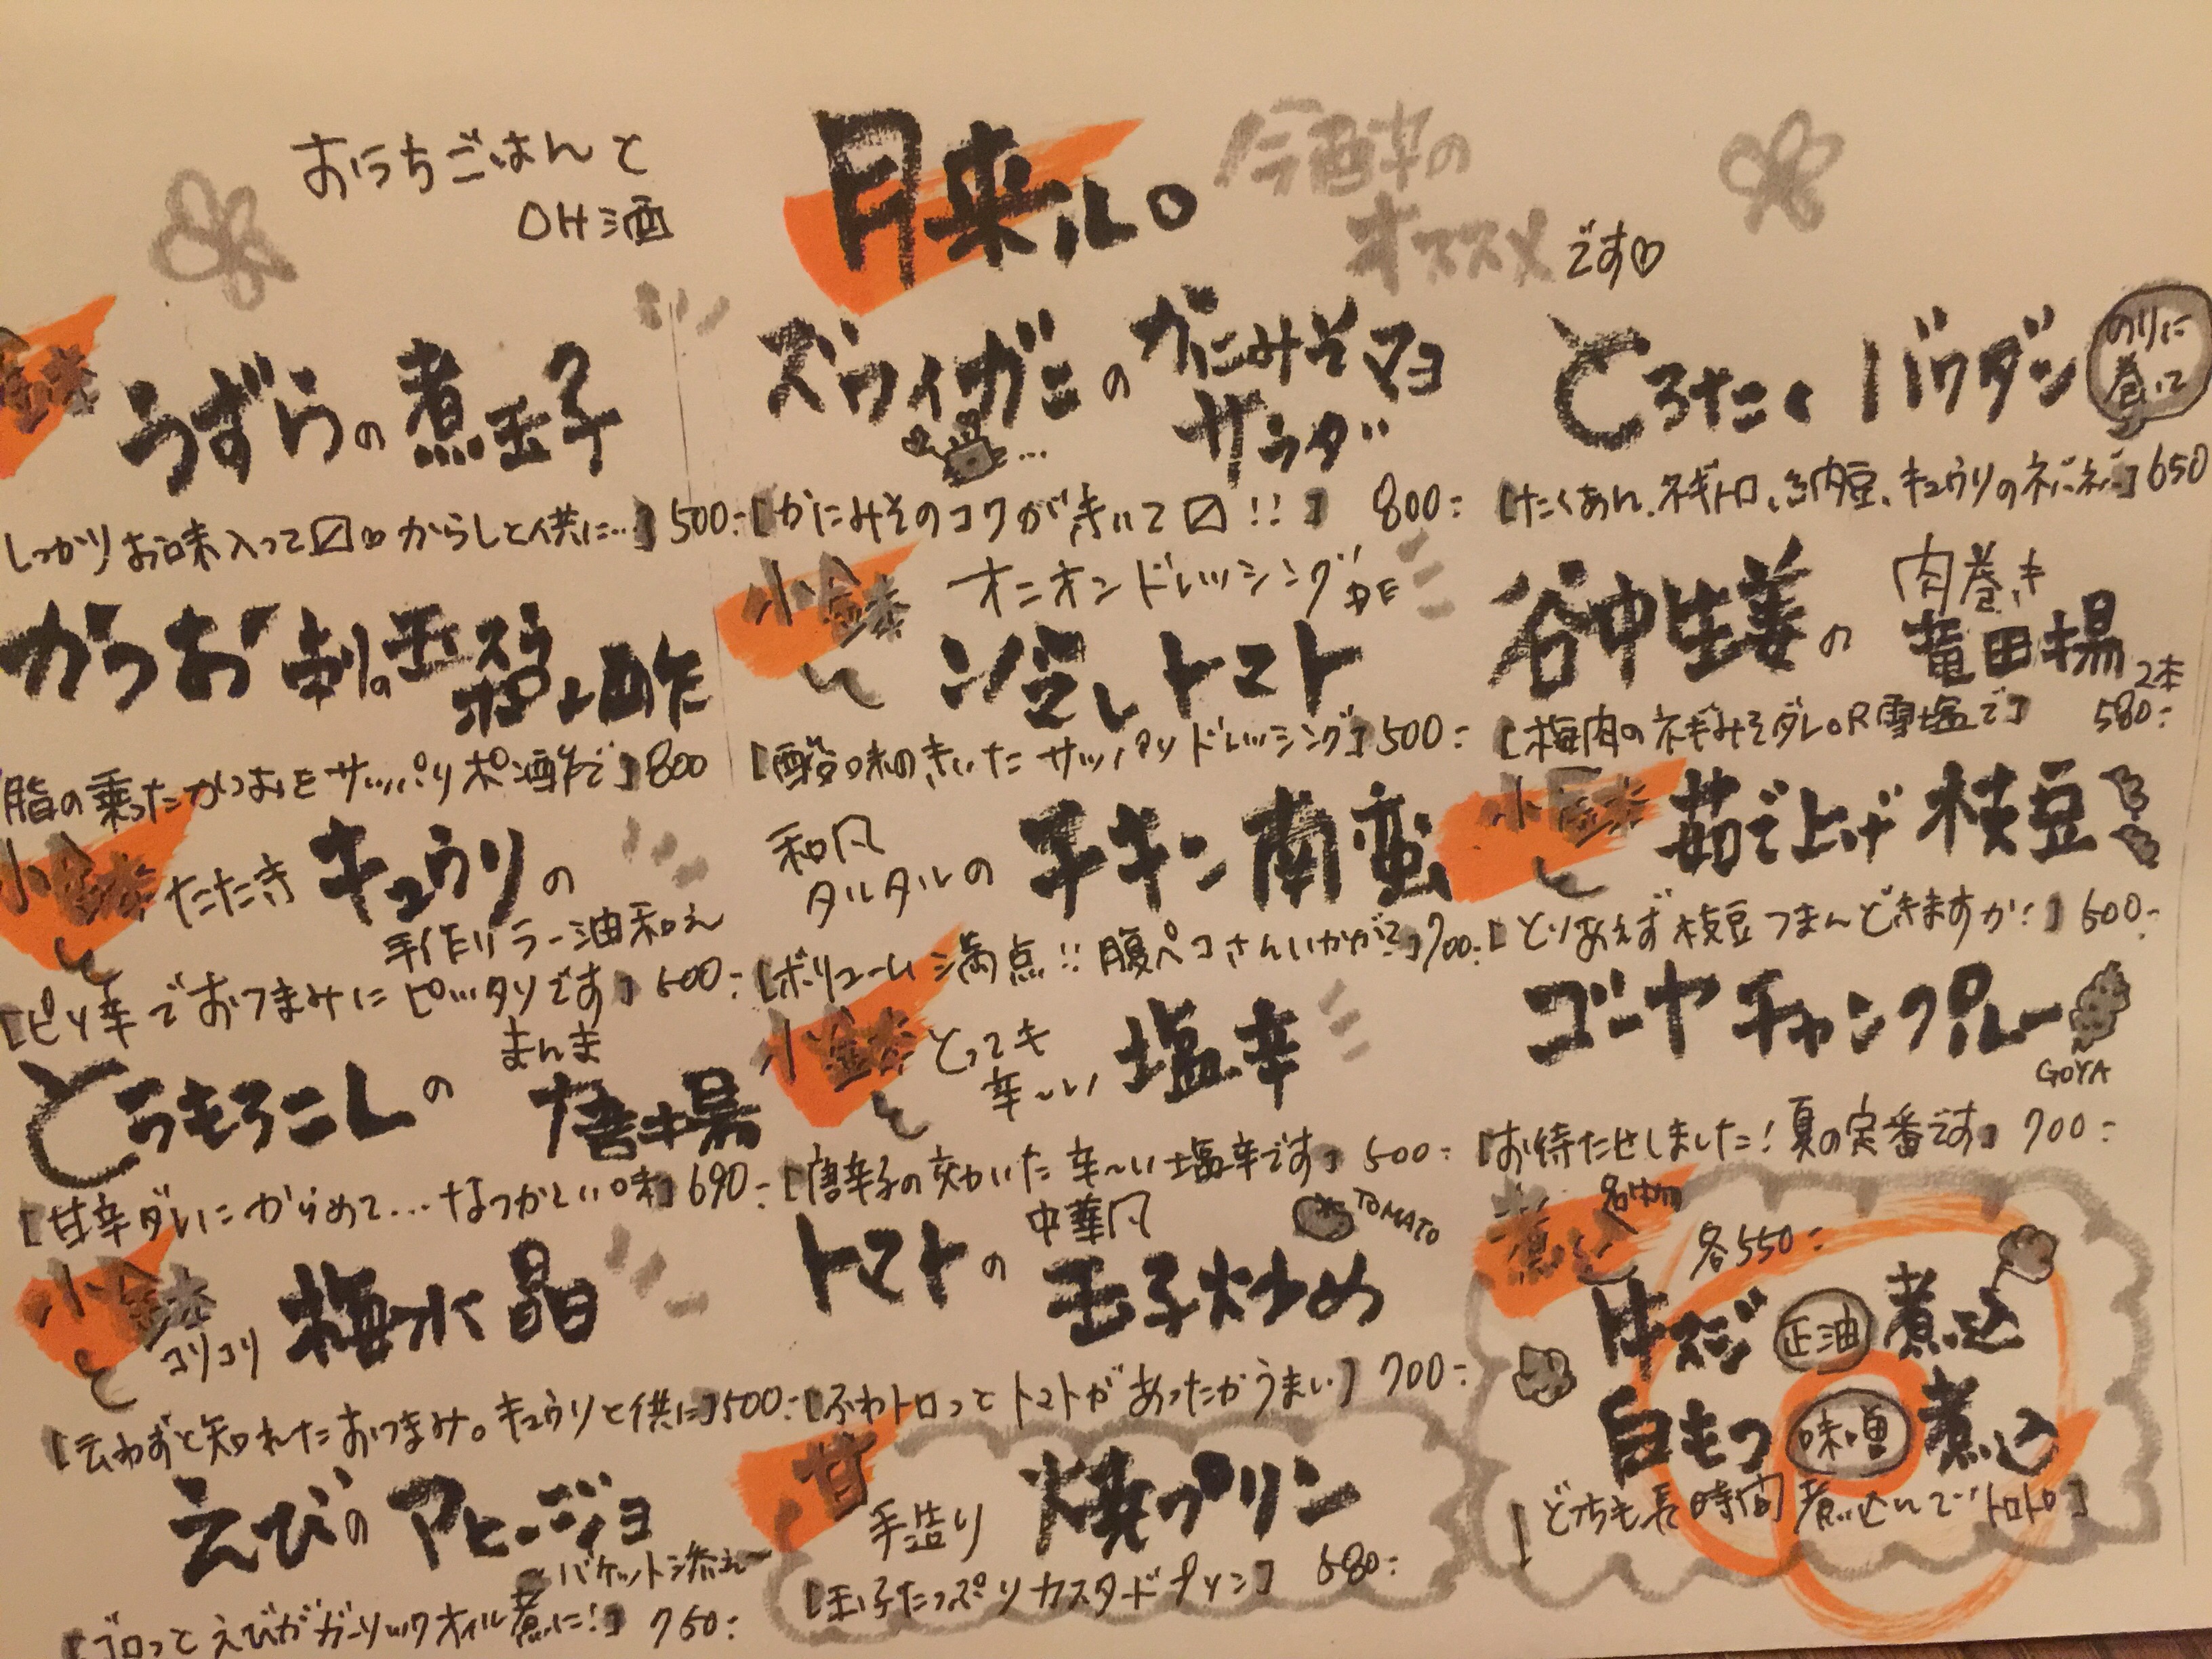 おうちごはんと
OH酒
月来ル。
今酒の
オススメです♡
小鉢
うずらの煮玉子
しっかりお味入って〼 からしと供に…】500-
かつお刺の玉ネギポン酢
脂の乗ったかつおをサッパリポン酢で】800
小鉢 たたき キュウリの
手作りラー油和え
【ピリ辛でおつまみにピッタリです】500-
とうもろこしの まんま 唐揚
【甘辛ダレにからめて…なつかしい味】690-
小鉢 コリコリ 梅水晶
【云わずと知れたおつまみ。キュウリと供に】500-
えびのアヒージョ
バケット添え
【ゴロっとえびがガーリックオイル煮に!】750-
ズワイガニのかにみそマヨ
サラダ
【かにみそのコクがきいて〼!!】 800-
小鉢 オニオンドレッシングDE
冷しトマト
【酸味のきいたサッパリドレッシング】500-
和風
タルタルの チキン南蛮
【ボリューム満点!!腹ペコさんいかが?】700-
小鉢 とっても
辛〜い 塩辛
【唐辛子の効いた辛〜い塩辛です】500-
TOMATO
トマトの 中華風
玉子炒め
【ふわトロっとトマトがあったかうまい】700-
甘
手造り 焼プリン
【玉子たっぷりカスタードプリン】580-
とろたくバクダン のりに
巻いて
【たくあん、ネギトロ、納豆、キュウリのネバネバ】650
谷中生姜の 肉巻き
竜田揚 2本
【梅肉のネギみそダレOR雪塩で】 580-
小鉢 茹で上げ枝豆
【とりあえず枝豆つまんどきますか!】500-
ゴーヤチャンプルー
GOYA
【お待たせしました!夏の定番です】700-
煮込 名物
各550-
牛スジ 正油 煮込
白もつ 味噌 煮込
【どちも長時間煮込んでトロトロ】